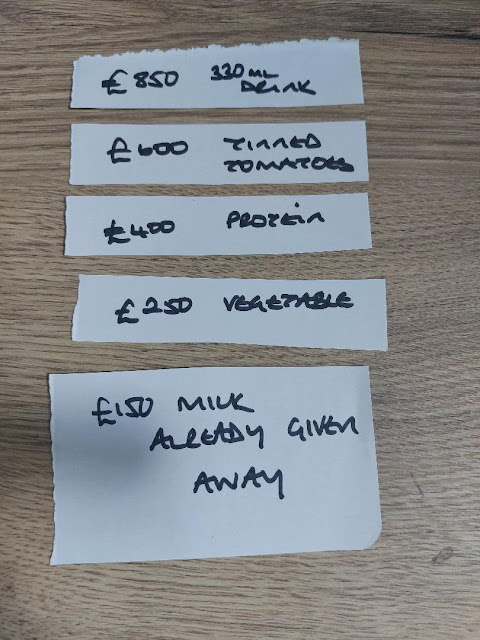 £850 330ML
DRINK
£600 TINNED
TOMATOES
£400 PROTEIN
£250 VEGETABLE
£150 MILK
ALREADY GIVEN
AWAY